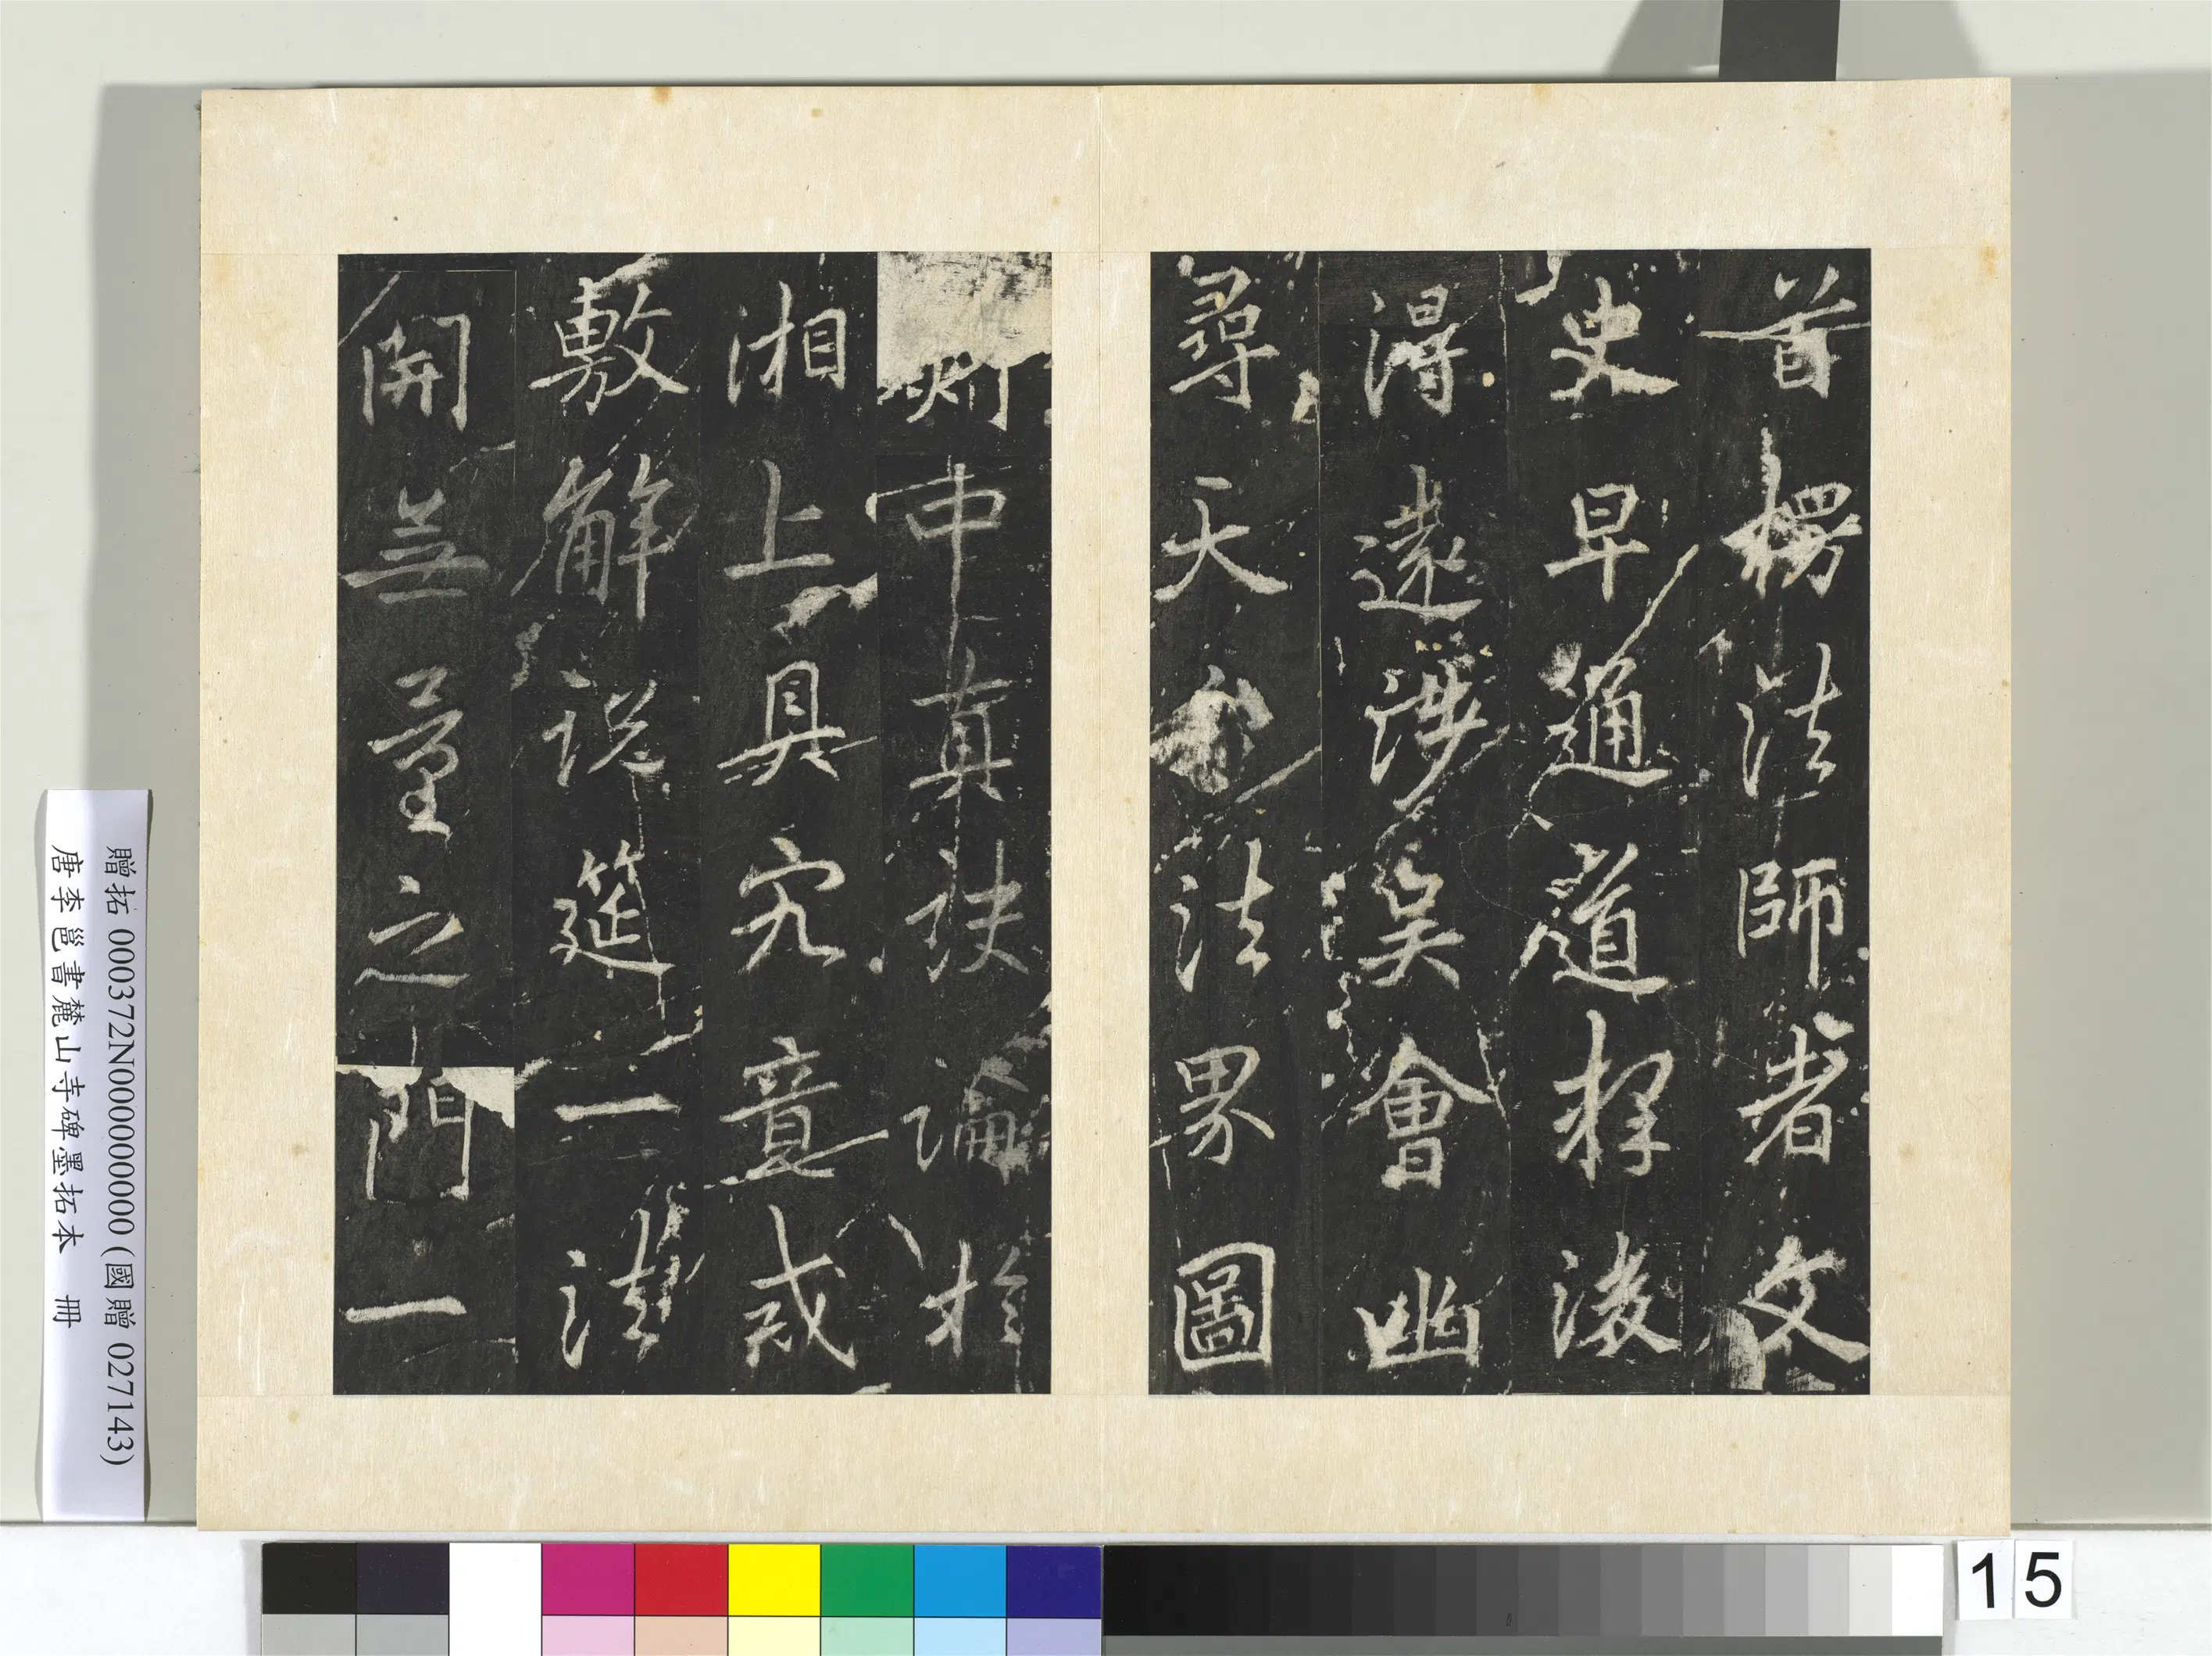 首楞法師者文
史早通道釋後
得遠涉吳會幽
尋天法界圖
剡中真訣論於
湘上具究竟戒
敷解說筵一法
開無量之門一
贈拓 000372N000000000 (國贈 027143)
唐李邕書麓山寺碑墨拓本 冊
15